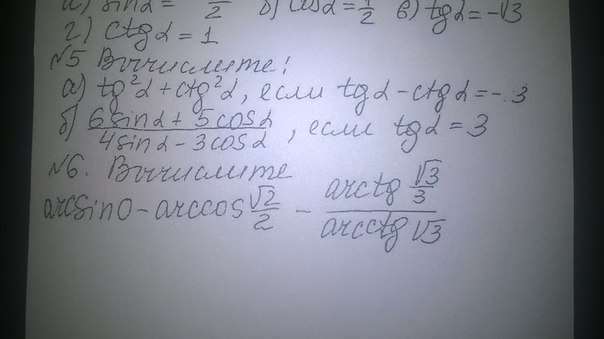 а) sinα = 2 б) cosα = 1/2 в) tgα = -√3
г) ctgα = 1
№5 Вычислите:
а) tg²α + ctg²α, если tgα - ctgα = -3
б) (6sinα + 5cosα)/(4sinα - 3cosα), если tgα = 3
№6. Вычислите
arcsin0 - arccos √2/2 - (arctg √3/3)/(arcctg √3)